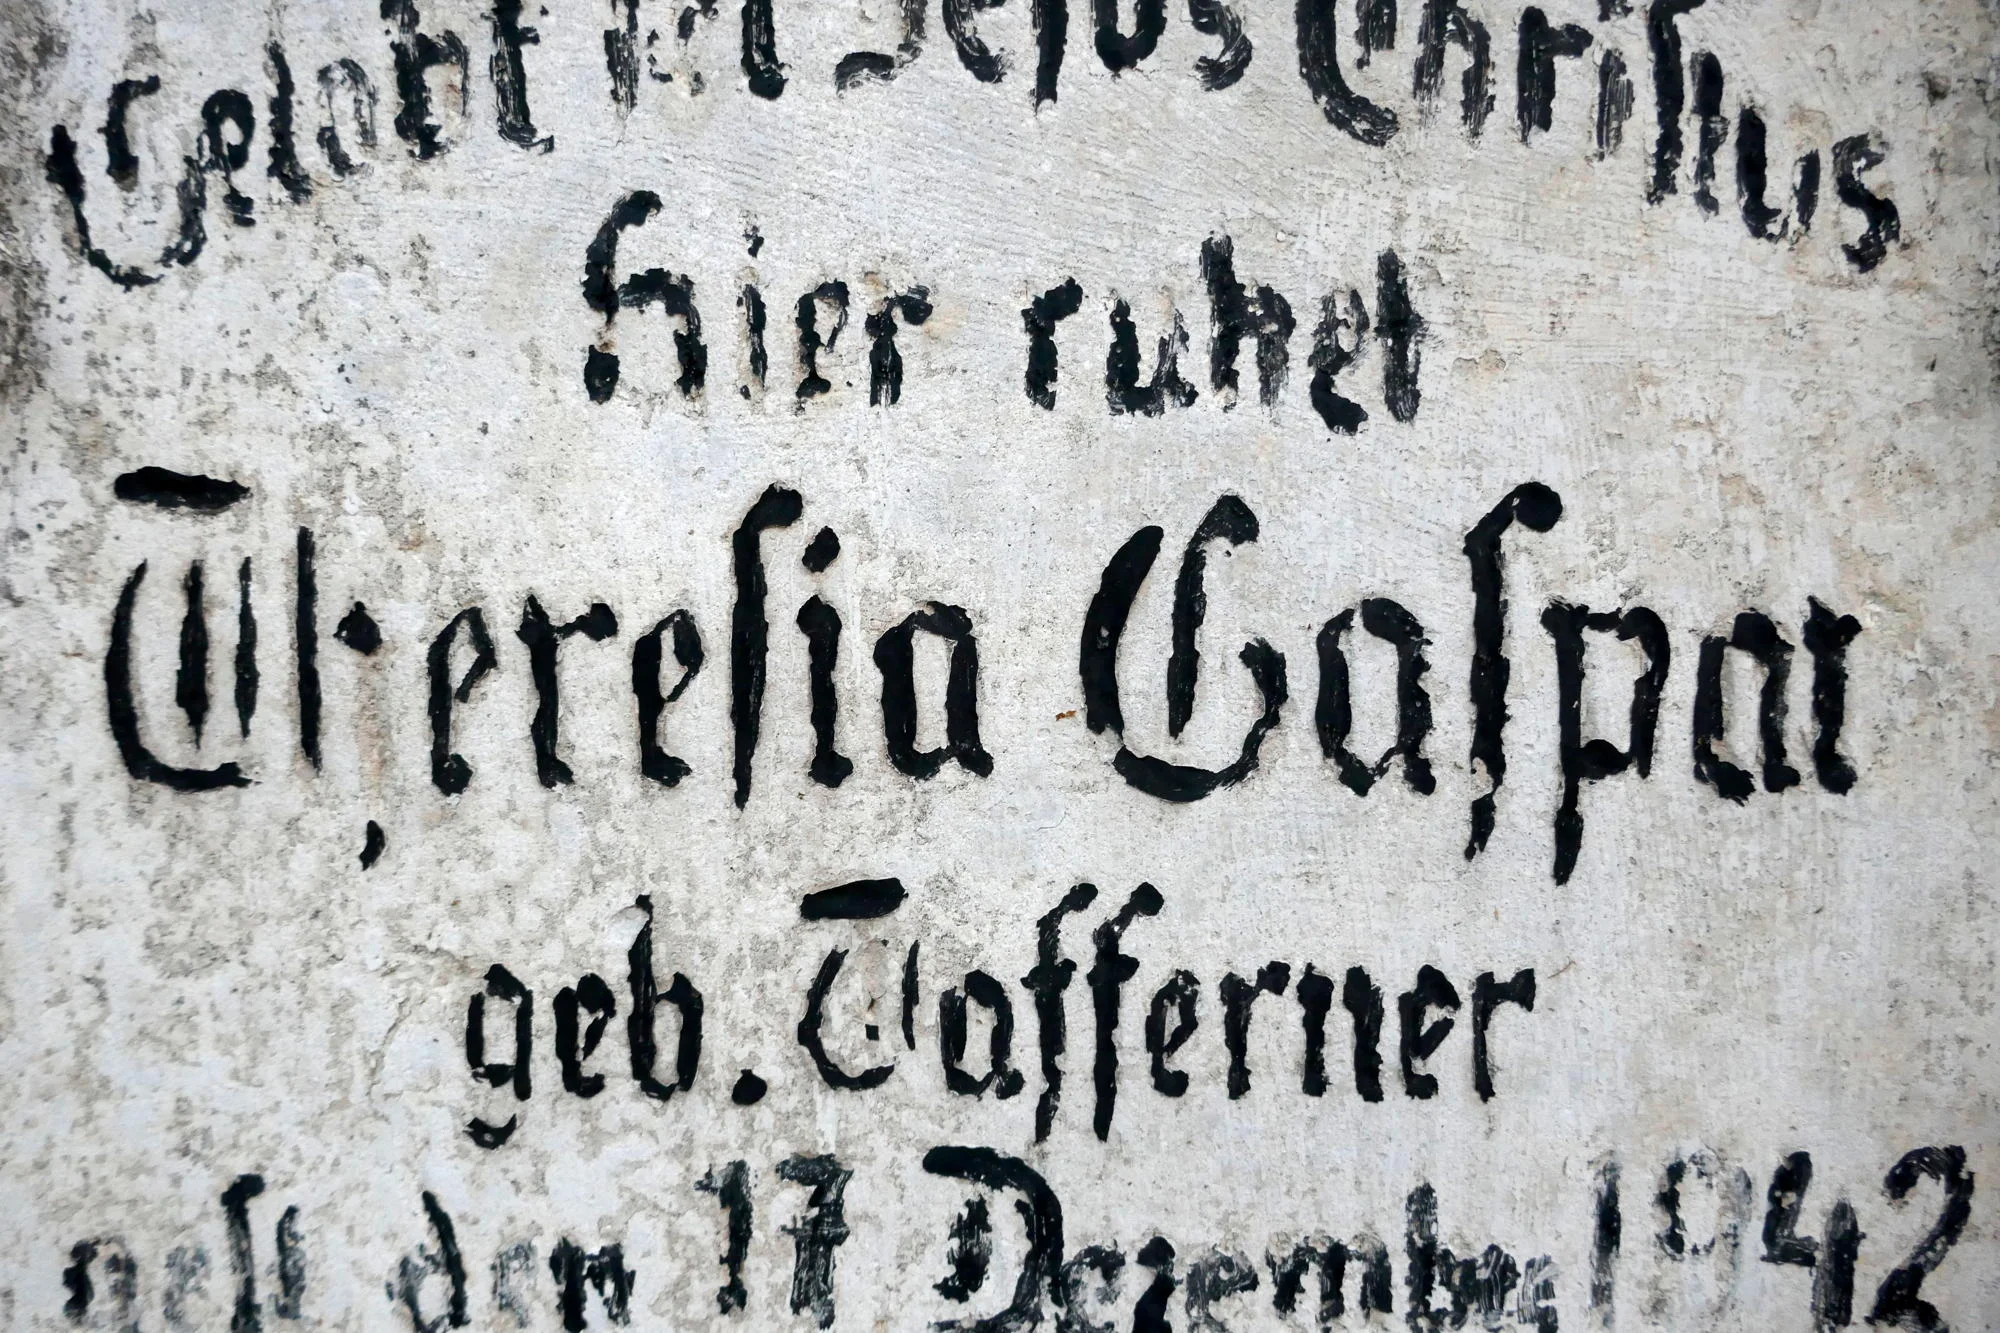 Gelobt sei Jesus Christus
Hier ruhet
Theresia Gaspar
geb. Tafferner
gest den 17 Dezember 1942